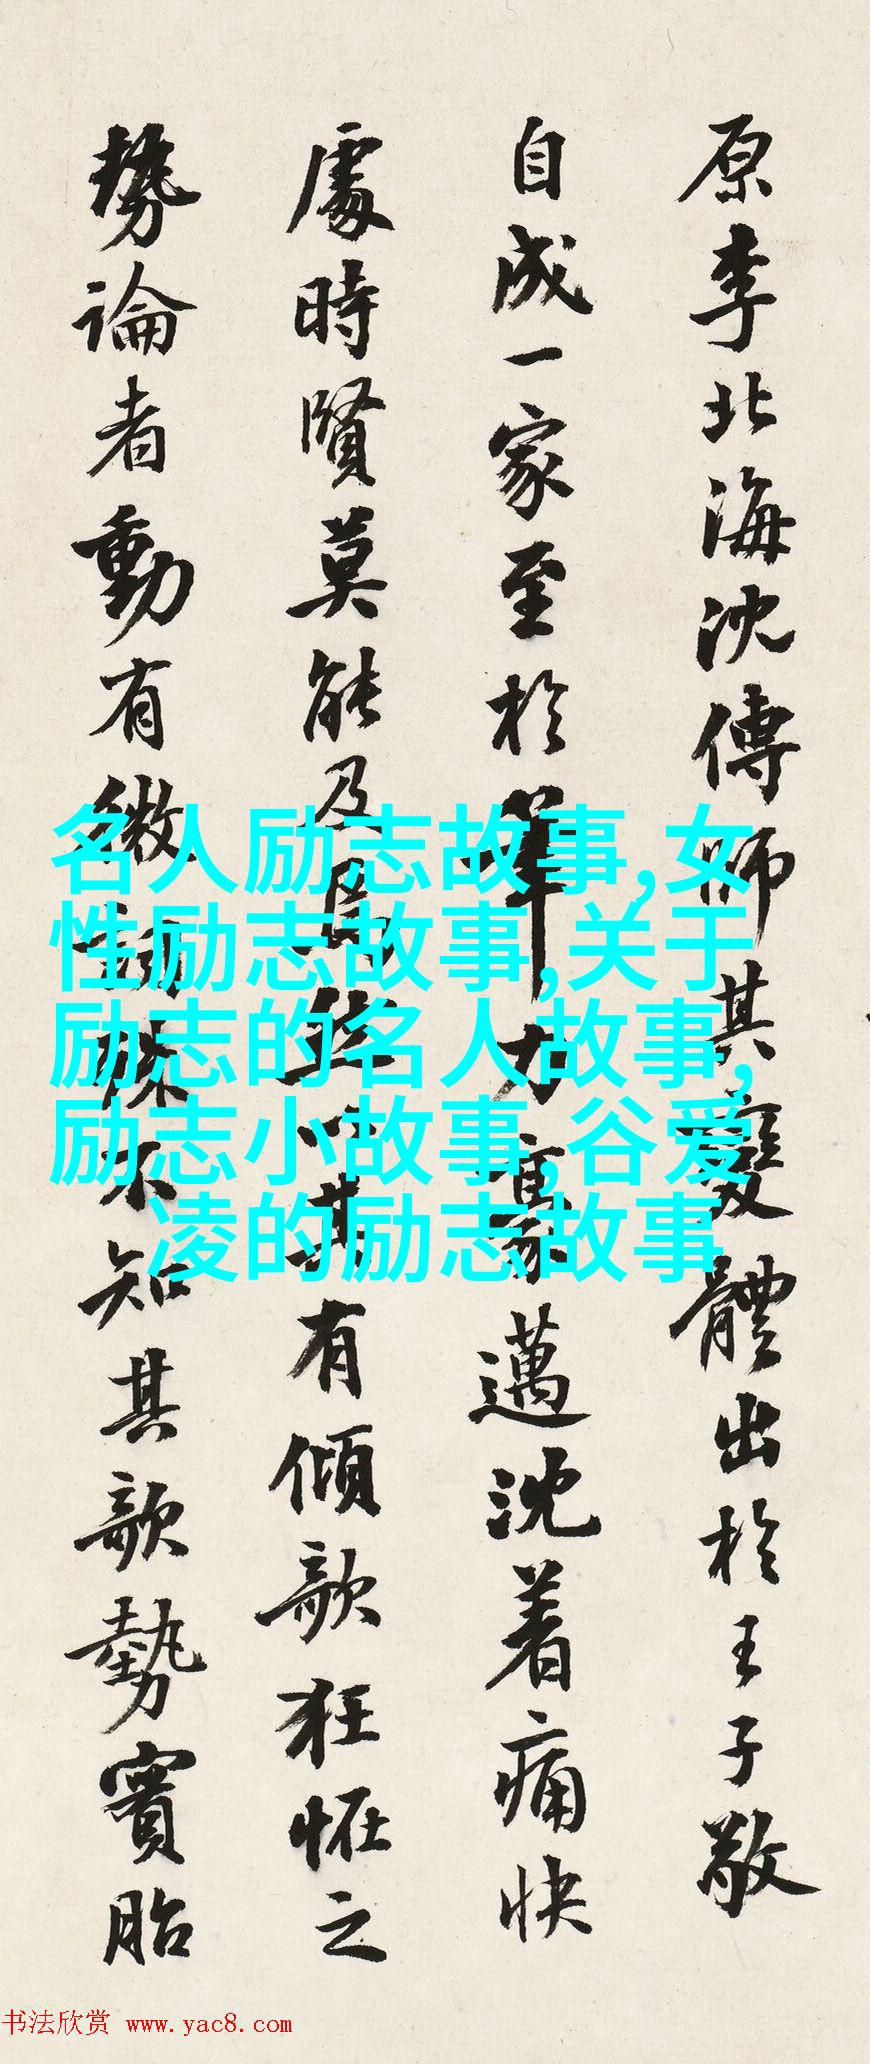 原李北海沈傳師其變體出於王子敬
自成一家至於筆力豪邁沈着痛快
處時賢莫能及焉然以其有傾欹狂怪之
勢論者動有微詞殊不知其欹勢實胎
名人励志故事,女
性励志故事,关于
励志的名人故事,
励志小故事,谷爱
凌的励志故事
书法欣赏 www.yac8.com